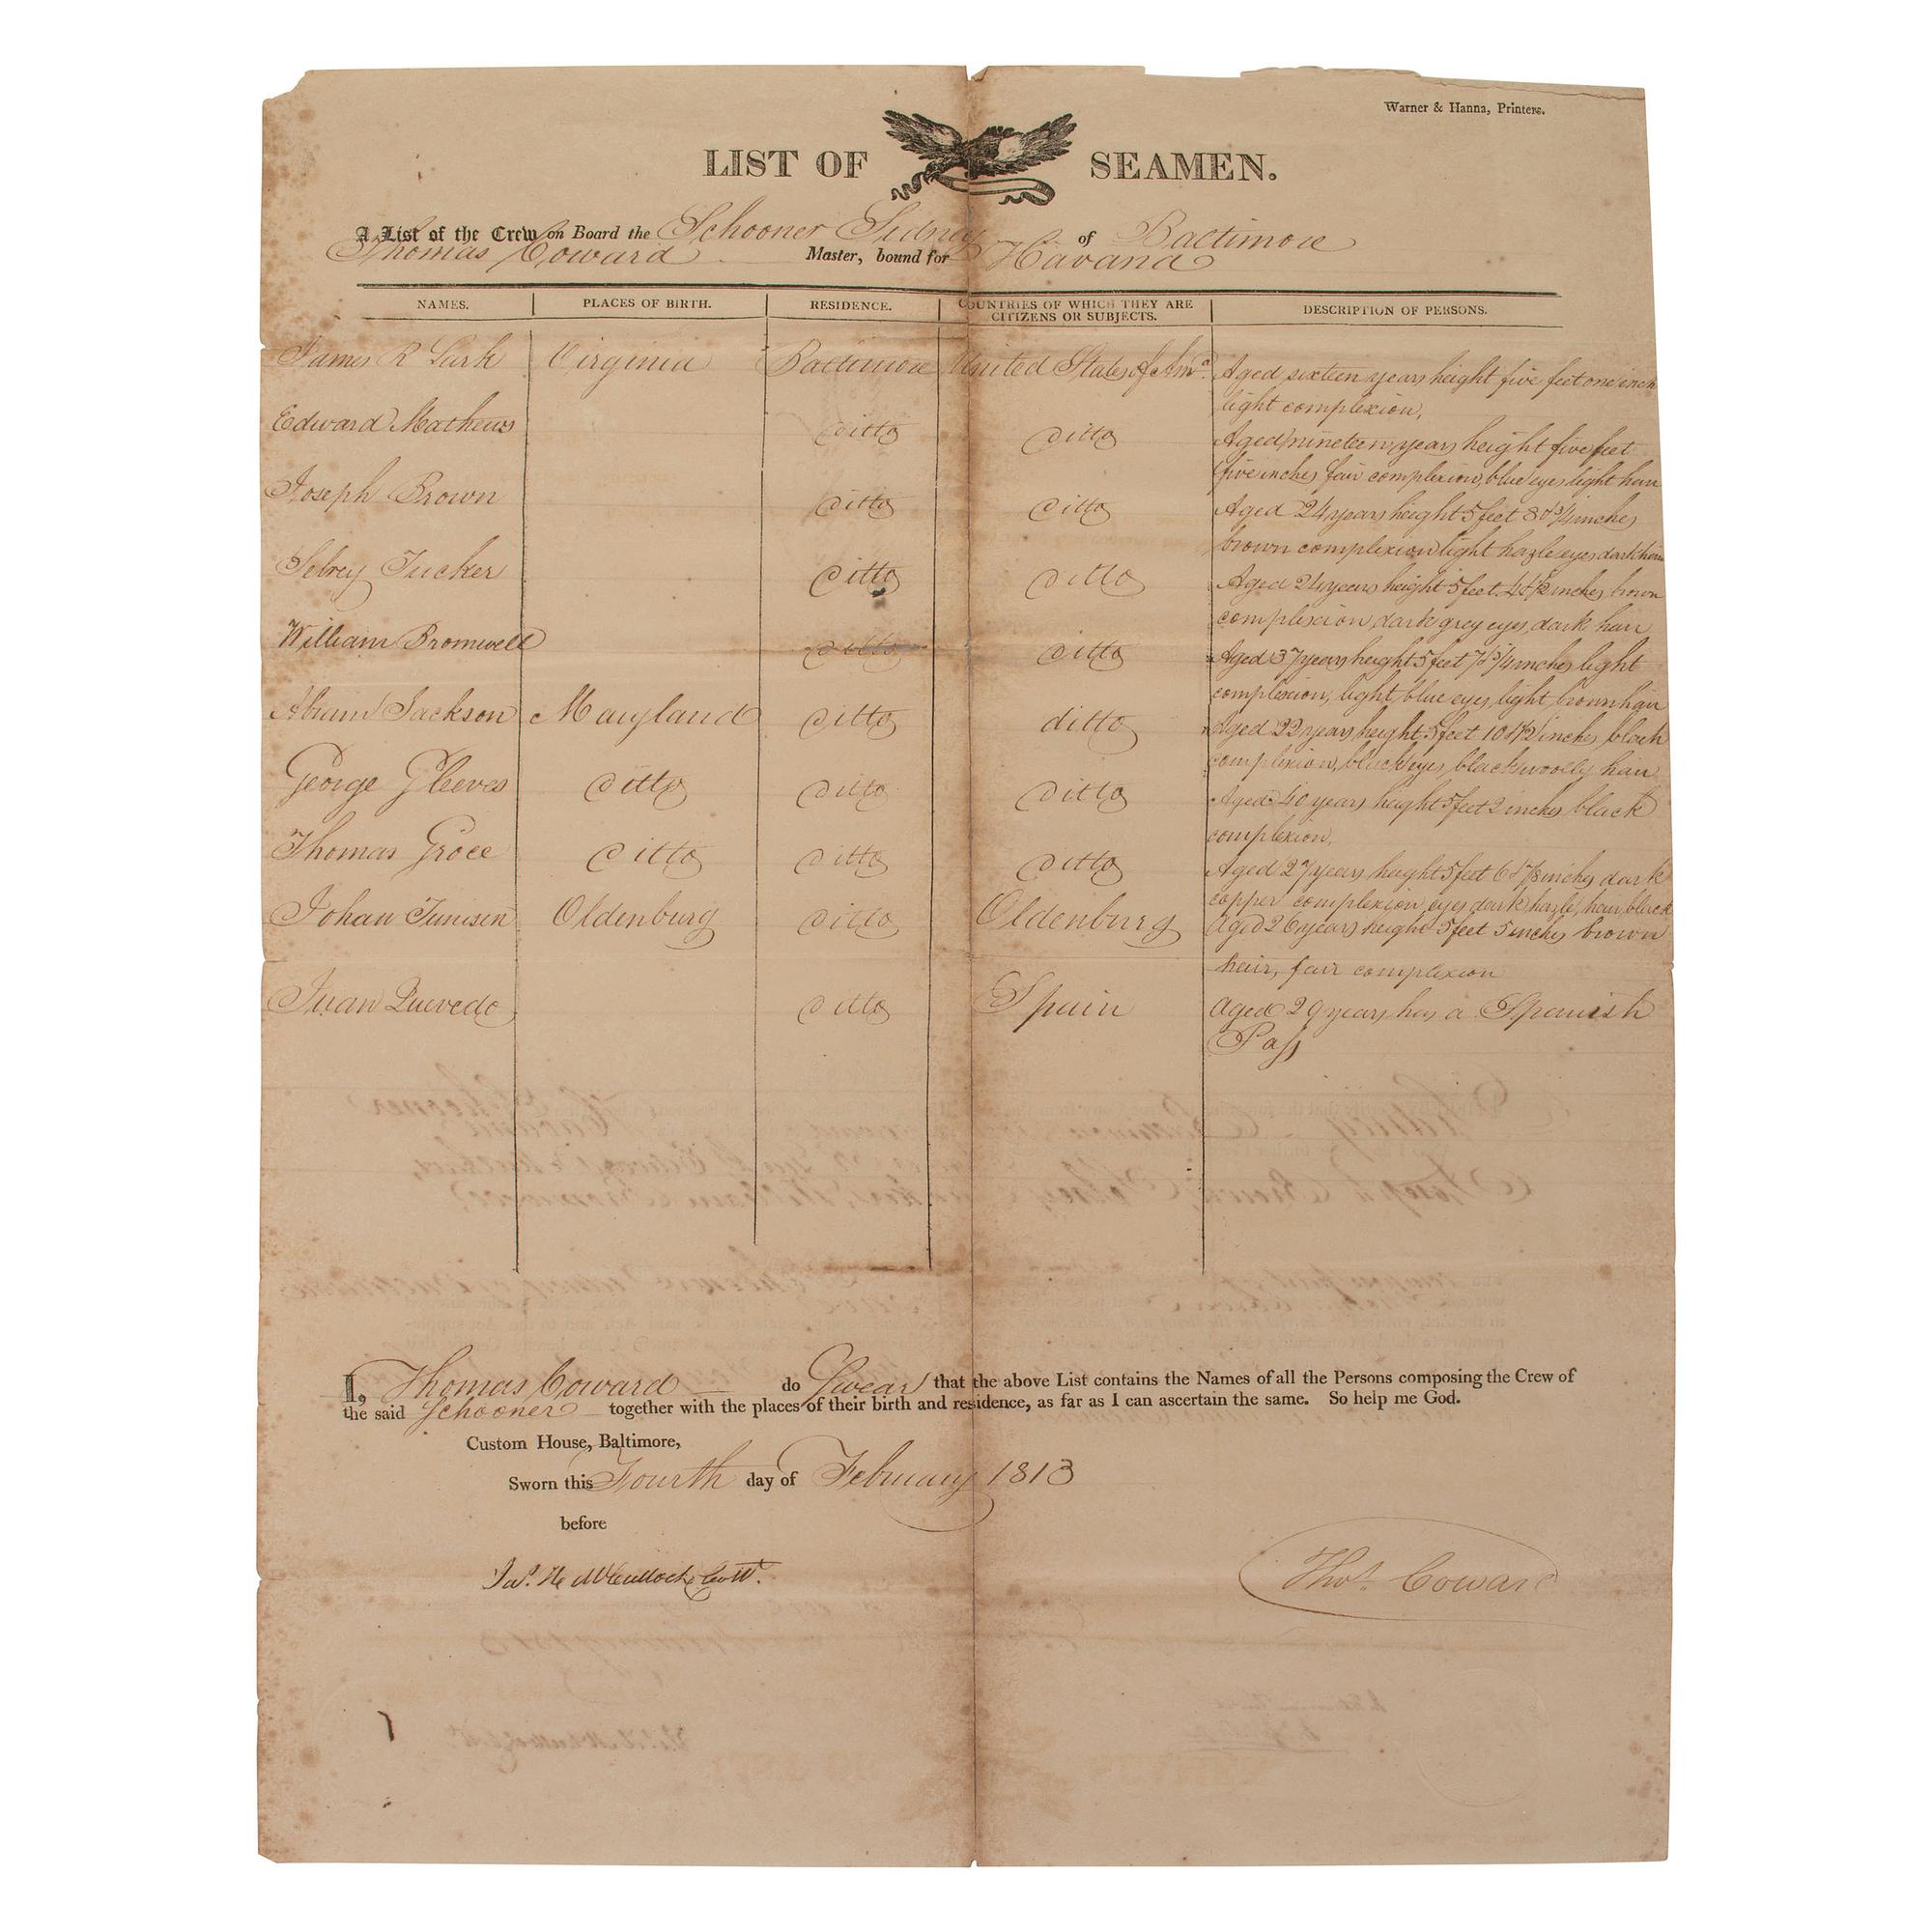 Warner & Hanna, Printers.
LIST OF SEAMEN.
A List of the Crew on Board the Schooner Sidney of Baltimore
Thomas Coward Master, bound for Havana
NAMES. PLACES OF BIRTH. RESIDENCE. COUNTRIES OF WHICH THEY ARE CITIZENS OR SUBJECTS. DESCRIPTION OF PERSONS.
James R Lark Virginia Baltimore United States of Ama. Aged sixteen years height five feet one inch
light complexion,
Edward Mathews ditto ditto Aged nineteen years height five feet
five inches fair complexion, blue eyes light hair
Joseph Brown ditto ditto Aged 24 years height 5 feet 8 & 3/4 inches
brown complexion light hazle eyes dark hair
Selvey Tucker ditto ditto Aged 24 years height 5 feet 4 & 1/2 inches brown
complexion, dark grey eyes, dark hair
William Bromwell ditto ditto Aged 37 years height 5 feet 7 & 3/4 inches light
complexion, light blue eyes, light brown hair
Abram Jackson Maryland ditto ditto Aged 22 years height 5 feet 10 & 1/2 inches black
complexion, black eyes, black woolly hair
George Gleeves ditto ditto ditto Aged 40 years height 5 feet 2 inches black
complexion,
Thomas Groce ditto ditto ditto Aged 27 years, height 5 feet 6 & 7/8 inches dark
copper complexion, eyes dark hazle, hair black
Johan Tunisen Oldenburg ditto Oldenburg Aged 26 years height 5 feet 5 inches brown
hair, fair complexion
Juan Quevedo ditto Spain Aged 29 years has a Spanish
Pass
I, Thomas Coward do Swear that the above List contains the Names of all the Persons composing the Crew of
the said Schooner together with the places of their birth and residence, as far as I can ascertain the same. So help me God.
Custom House, Baltimore,
Sworn this Fourth day of February 1813
before
Jas. H. McCulloch Collr.
Thos. Coward